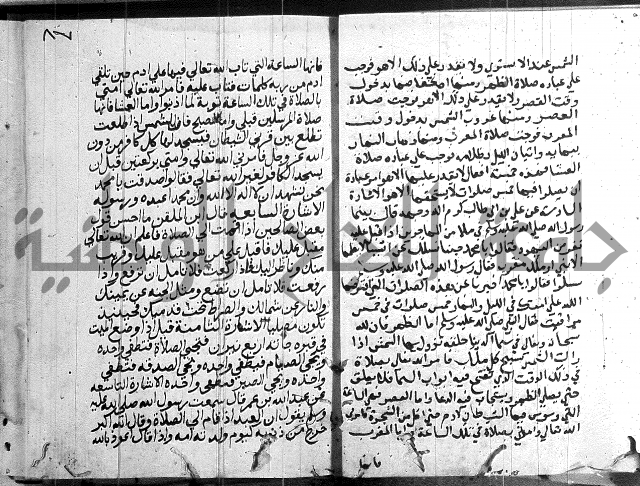 الشمس عند الاستوى ولا يقدر على ذلك الا هو فوجب
على عباده صلاة الظهر ومنها اصفراها بدخول
وقت العصر ولا يقدر على ذلك الا هو فوجبت صلاة
العصر ومنها غروب الشمس بدخول وقت
المغرب فوجبت صلاة المغرب ومنها ذهاب النهار
بضيايه واتيان الليل بظلامه فوجب على عباده صلاة
العشا فهذه خمسة افعال لا يقدر عليها الا هو امر عباده
ان يصلوا فيها خمس صلوات لا يستحقها الا هو الاشارة
السادسة عن علي بن ابي طالب كرم الله وجهه قال بينما
رسول الله صلى الله عليه وسلم في ملا من المهاجرين اذ اقبل عليه
نفر من اليهود وقالوا يا محمد جينا نسالك عن اشيا لا يعلمها
الا نبي او ملك مقرب فقال رسول الله صلى الله عليه وسلم
سلوا فقالوا يا محمد اخبرنا عن هذه الصلوات التي افترضها
الله على امتك في الليل والنهار خمس صلوات في خمس
مواقيت فقال النبي صلى الله عليه وسلم اما الظهر فان لله
سبحانه وتعالى في سما حلقة تزول بها الشمس اذا
زالت الشمس تسبح كل ملك فامر الله تعالى بصلاة
في ذلك الوقت الذي تفتح فيه ابواب السما فلا يغلق
حتى يصلى الظهر ويستجاب فيه الدعا واما العصر فهي الساعة
التي وسوس فيها الشيطان لادم حتى اكل من الشجرة فامرني
الله تعالى وامتي بصلاة في تلك الساعة واما المغرب
فانها
فانها الساعة التي تاب الله تعالى فيها على ادم حين تلقى
ادم من ربه كلمات فتاب عليه فامر الله تعالى امتي
بالصلاة في تلك الساعة توبة لما اذنبوا واما العشا فانها
صلاة المرسلين قبلي واما الصبح فان الشمس اذا طلعت
تطلع بين قرني الشيطان فيسجد لها كل كافر من دون
الله عز وجل فامرني الله تعالى وامتي بركعتين قبل ان
يسجد الكافر لغير الله تعالى فقالوا صدقت يا محمد
نحن نشهد ان لا اله الا الله وان محمد عبده ورسوله
الاشارة السابعة قال ابن الملقن ما احسن قول
بعض الصالحين اذا اقمت الى الصلاة فاعلم ان الله تعالى
مقبل عليك فاقبل على من هو مقبل عليك وقريب
منك وناظر اليك فاذا ركعت فلا تامل ان ترفع واذا
رفعت فلا تامل ان تضع ومثل الجنة عن يمينك
والنار عن شمالك والصراط تحت قدميك فحينئذ
تكون مصليا الاشارة الثامنة قيل اذا وضع الميت
في قبره جاته اربع نيران فتجي الصلاة فتطفي واحدة
ويجي الصيام فيطفي واحدة وتجي الصدقة فتطفي
واحدة ويجي الصبر فيطفي واحدة الاشارة التاسعة
عن عبد الله بن عمر قال سمعت رسول الله صلى الله عليه
وسلم يقول ان العبد اذا قام الى الصلاة وقال الله اكبر
خرج من ذنوبه كيوم ولدته امه واذا قال اعوذ بالله